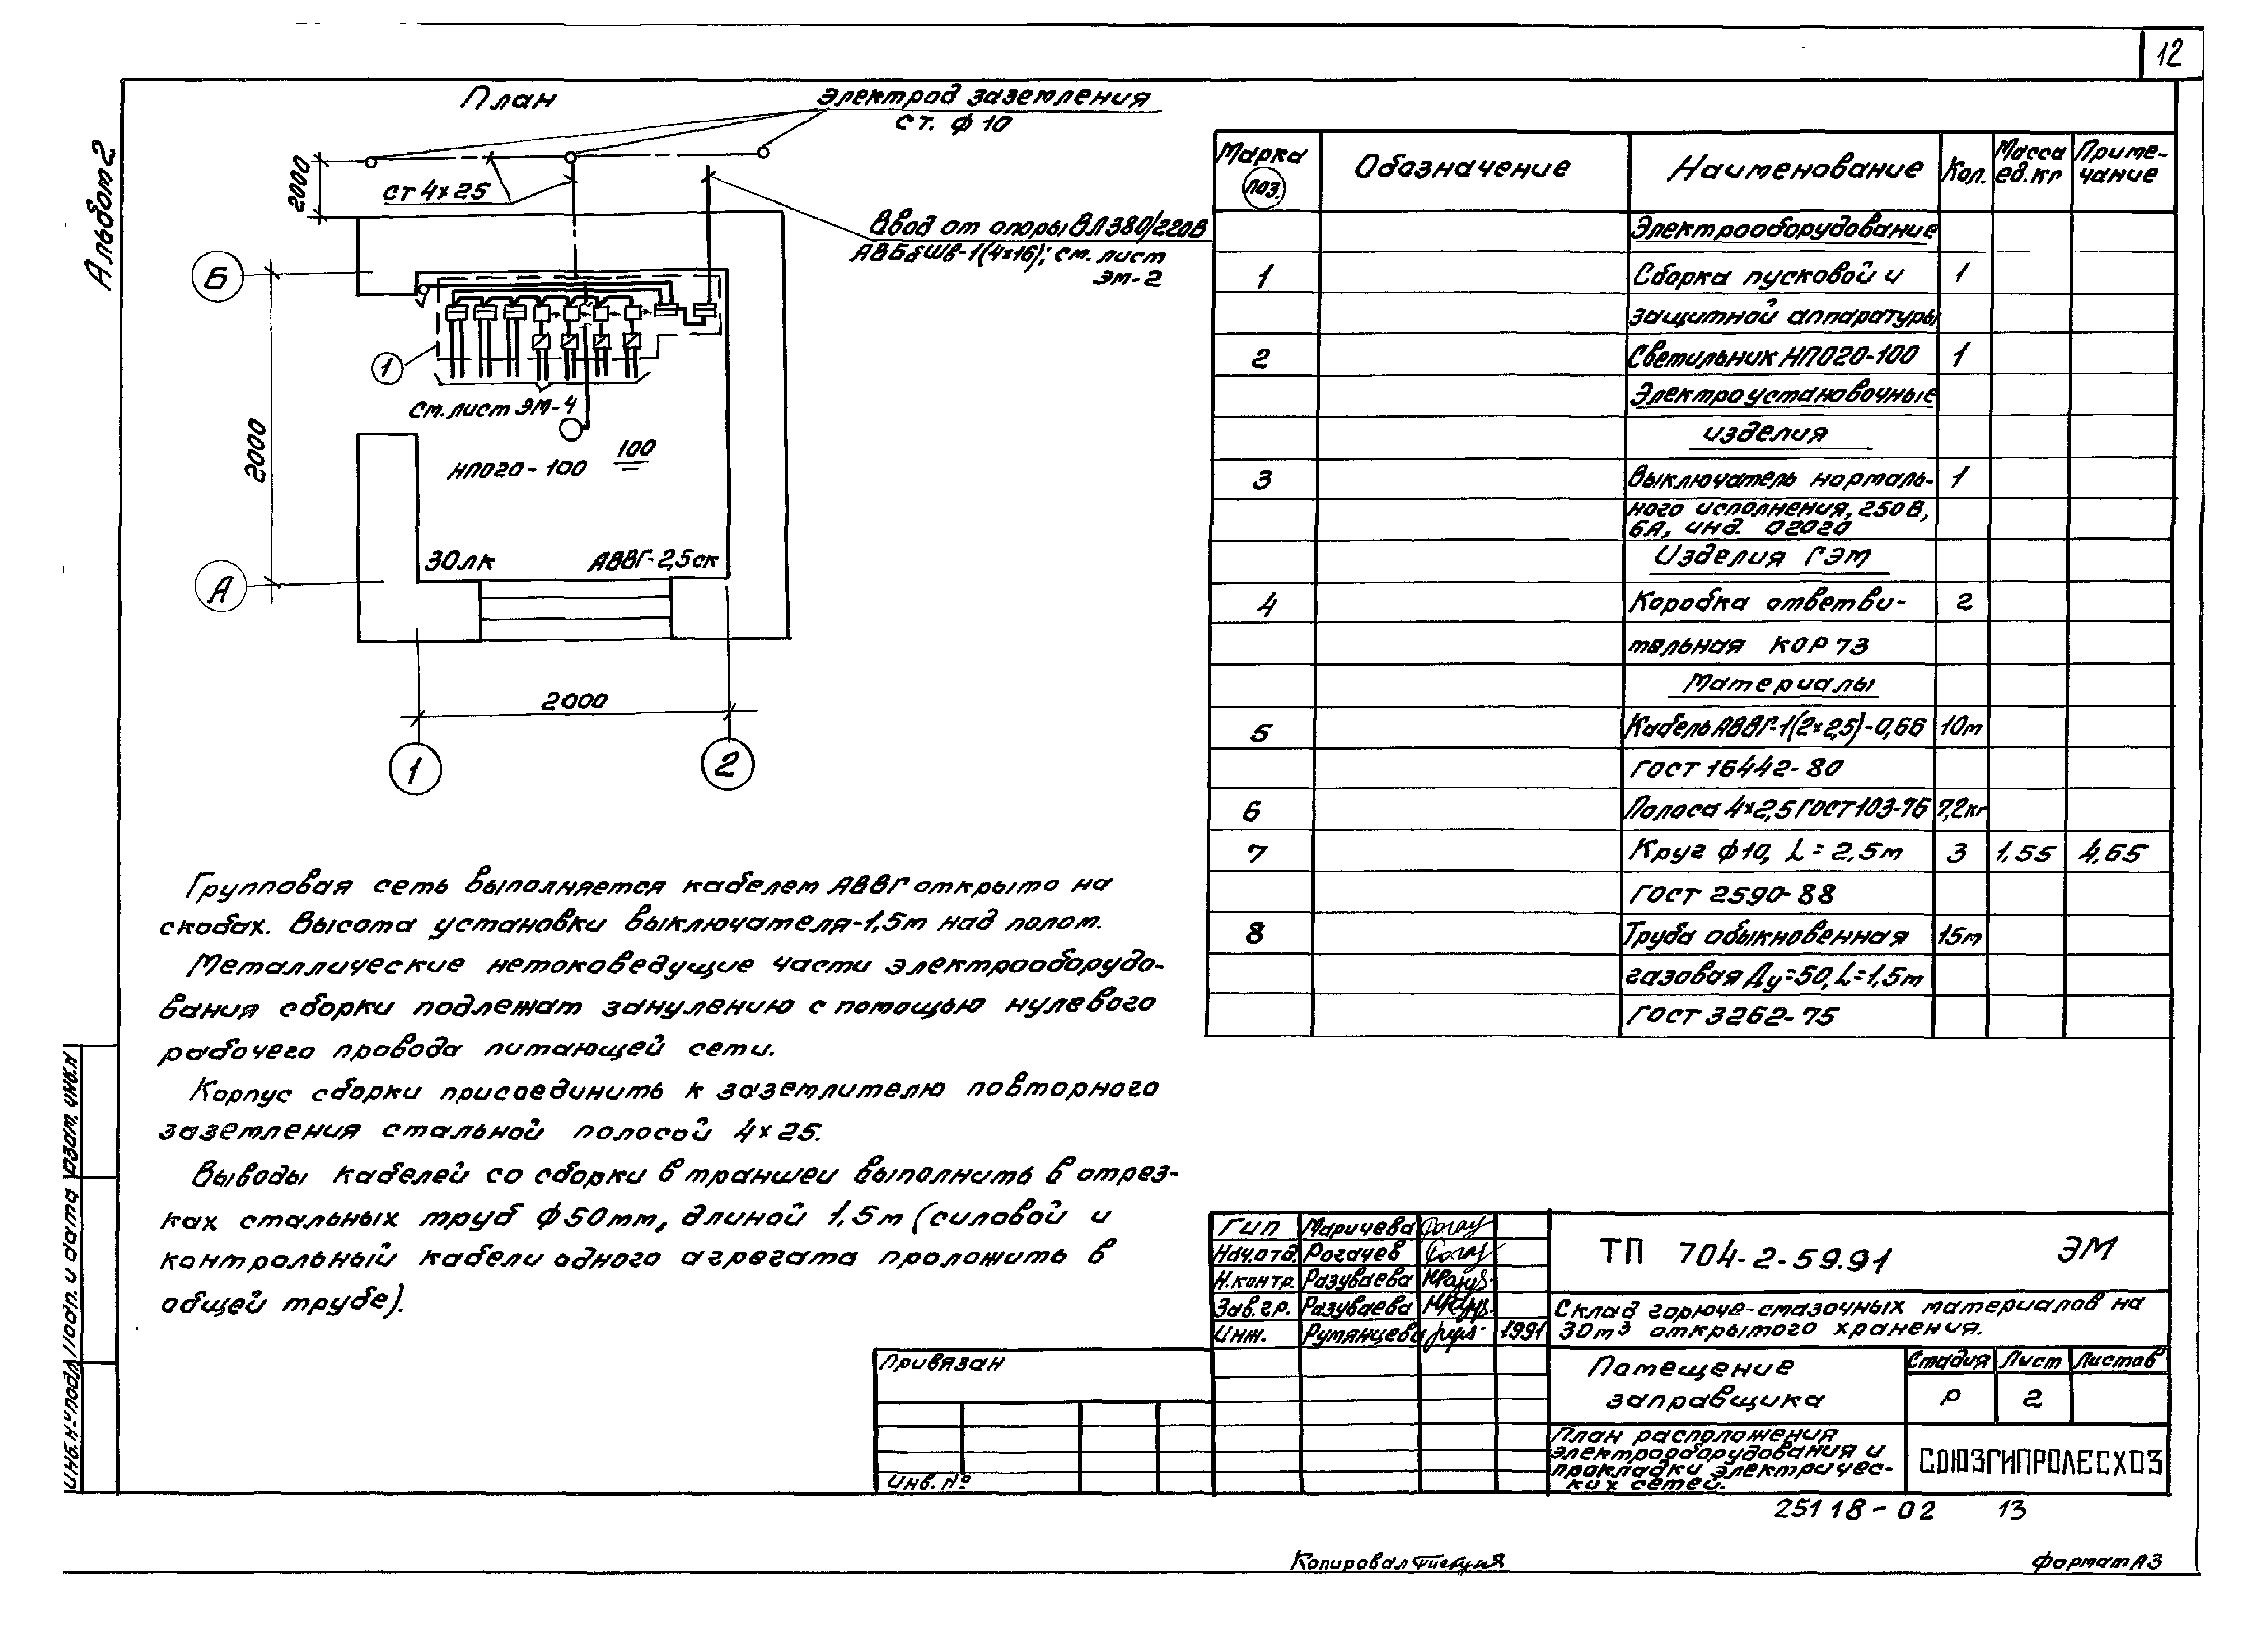 12
Альбом 2
План
Электрод заземления
ст. ф 10
2000
ст 4×25
Ввод от опоры ВЛ 380/220В
АВБбШв-1(4×16); см. лист
ЭМ-2
Б
1
См. лист ЭМ-4
2000
НПО20-100 100
30лк
АВВГ-2,5ск
А
2000
1
2
Групповая сеть выполняется кабелем АВВГ открыто на
скобах. Высота установки выключателя-1,5м над полом.
Металлические нетоковедущие части электрооборудо-
вания сборки подлежат занулению с помощью нулевого
рабочего провода питающей сети.
Корпус сборки присоединить к заземлителю повторного
заземления стальной полосой 4×25.
Выводы кабелей со сборки в траншеи выполнить в отрез-
ках стальных труб ф50мм, длиной 1,5м (силовой и
контрольный кабели одного агрегата проложить в
общей трубе).
Марка поз. Обозначение Наименование Кол. Масса ед.кг Приме-чание
Электрооборудование
1 Сборка пусковой и 1
защитной аппаратуры
2 Светильник НПО20-100 1
Электроустановочные
изделия
3 Выключатель нормаль- 1
ного исполнения, 250В,
6А, инд. 02020
Изделия ГЭМ
4 Коробка ответви- 2
тельная КОР 73
Материалы
5 Кабель АВВГ-1(2×2,5)-0,66 10м
ГОСТ 16442-80
6 Полоса 4×2,5 ГОСТ 103-76 7,2кг
7 Круг ф10, L=2,5м 3 1,55 4,65
ГОСТ 2590-88
8 Труба обыкновенная 15м
газовая Ду=50, L=1,5м
ГОСТ 3262-75
Гип Маричева
Нач.отд. Рогачев
Н.контр. Разуваева
Зав.гр. Разуваева
Инж. Румянцева 1991
ТП 704-2-59.91 ЭМ
Склад горюче-смазочных материалов на
30м³ открытого хранения.
Помещение
заправщика
Стадия Лист Листов
Р 2
План расположения
электрооборудования и
прокладки электричес-
ких сетей.
СОЮЗГИПРОЛЕСХОЗ
Привязан
Инв. №
Инв. № подл. Подп. и дата Взам. инв. №
25118-02 13
Копировал
Формат А3